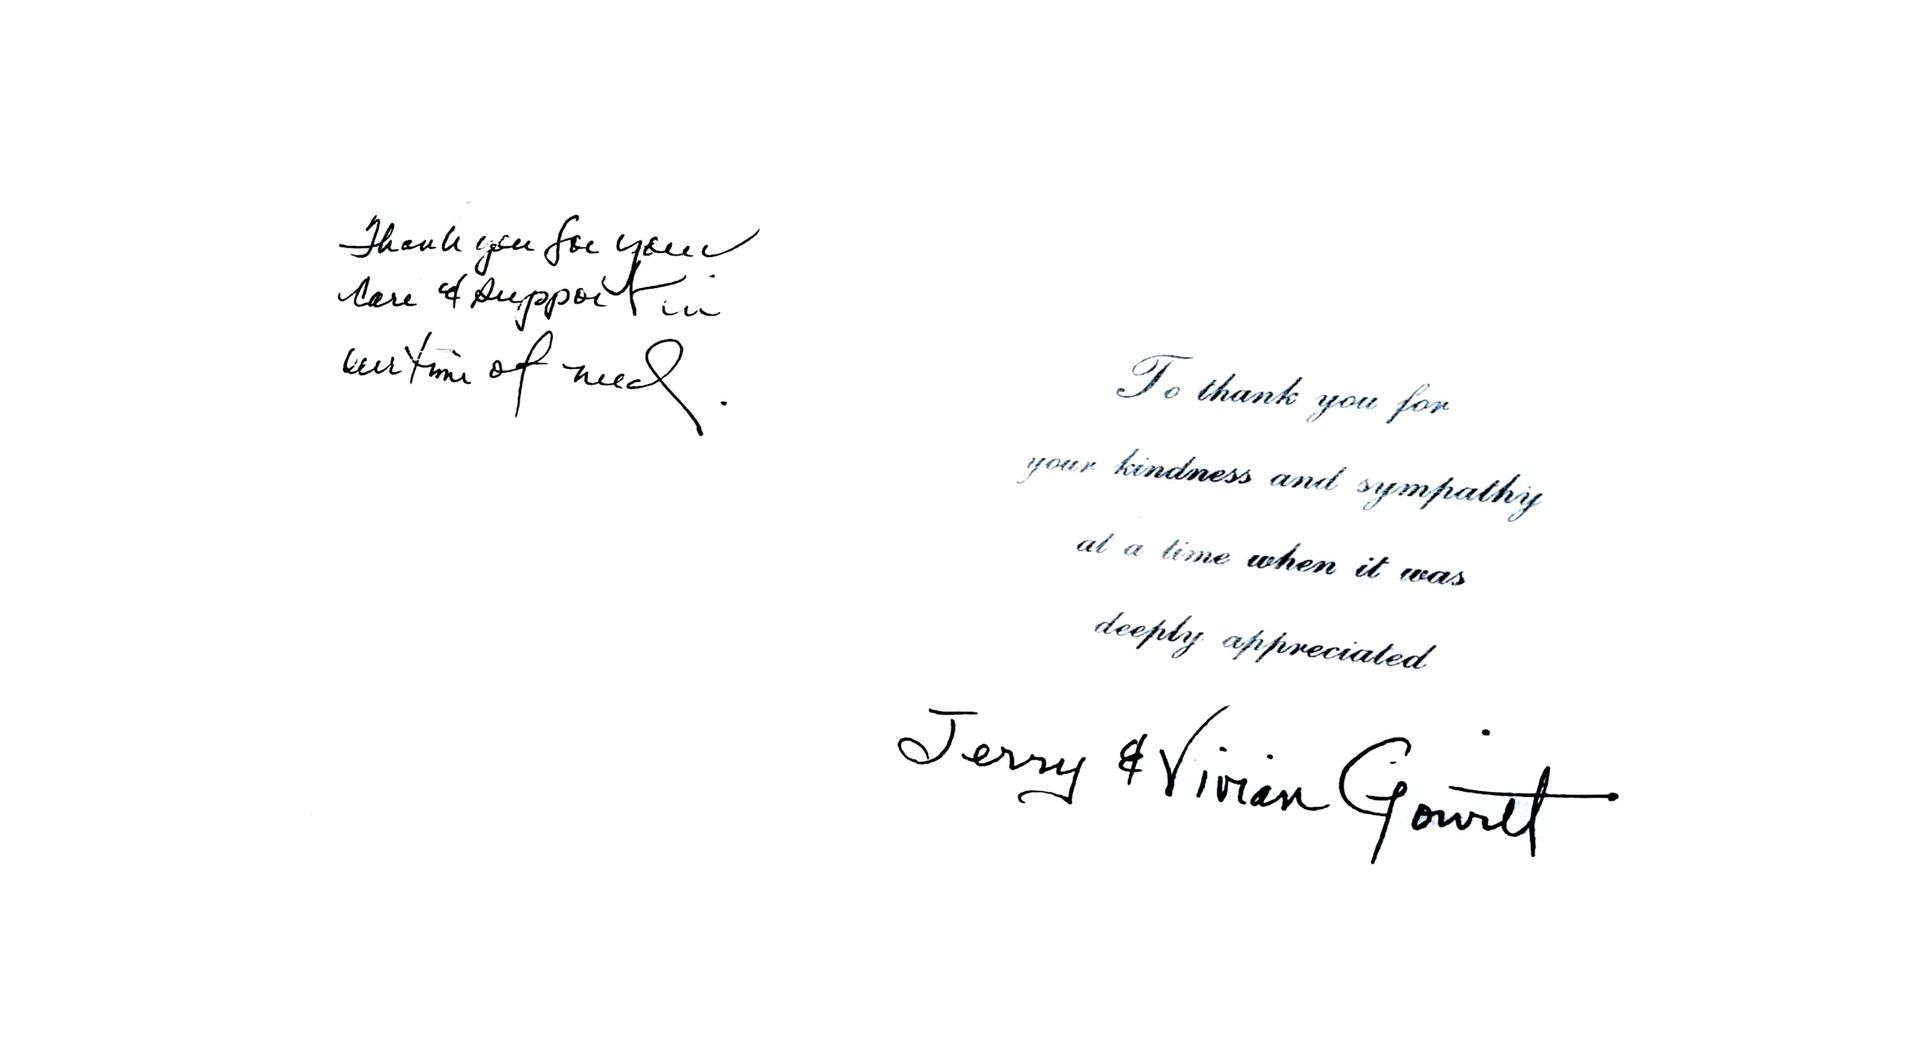 Thank you for your
care & support in
our time of need.
To thank you for
your kindness and sympathy
at a time when it was
deeply appreciated
Jerry & Vivian